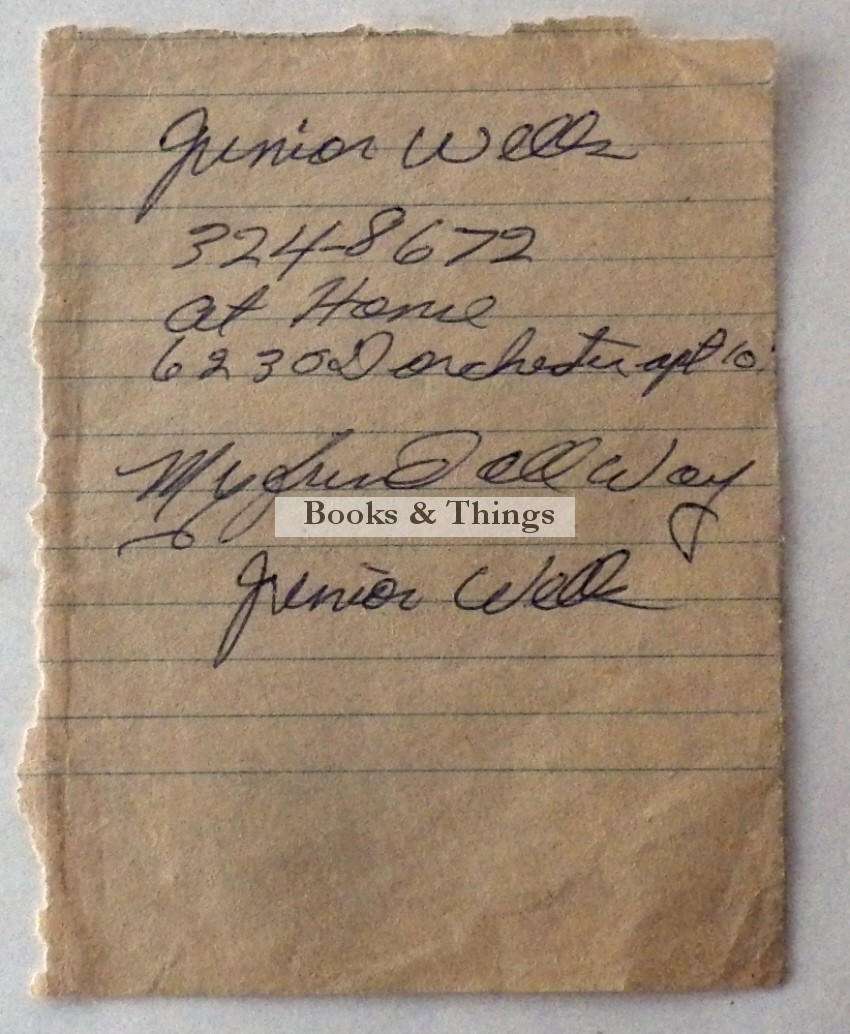 Junior Wells
324-8672
at Home
6230 Dorchester apt 10
My friend all Way
Books & Things
Junior Wells